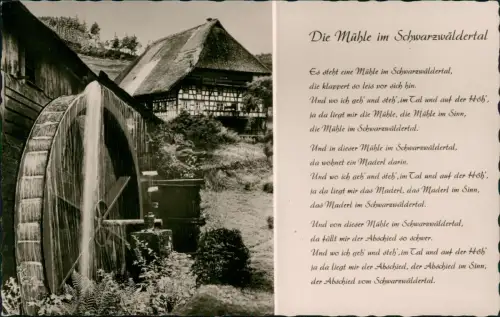 Die Mühle im Schwarzwäldertal
Es steht eine Mühle im Schwarzwäldertal,
die klappert so leis vor sich hin.
Und wo ich geh' und steh', im Tal und auf der Höh',
ja da liegt mir die Mühle, die Mühle im Sinn,
die Mühle im Schwarzwäldertal.
Und in dieser Mühle im Schwarzwäldertal,
da wohnet ein Maderl darin.
Und wo ich geh' und steh', im Tal und auf der Höh',
ja da liegt mir das Maderl, das Maderl im Sinn,
das Maderl im Schwarzwäldertal.
Und von dieser Mühle im Schwarzwäldertal,
da fällt mir der Abschied so schwer.
Und wo ich geh' und steh', im Tal und auf der Höh',
ja da liegt mir der Abschied, der Abschied im Sinn,
der Abschied vom Schwarzwäldertal.